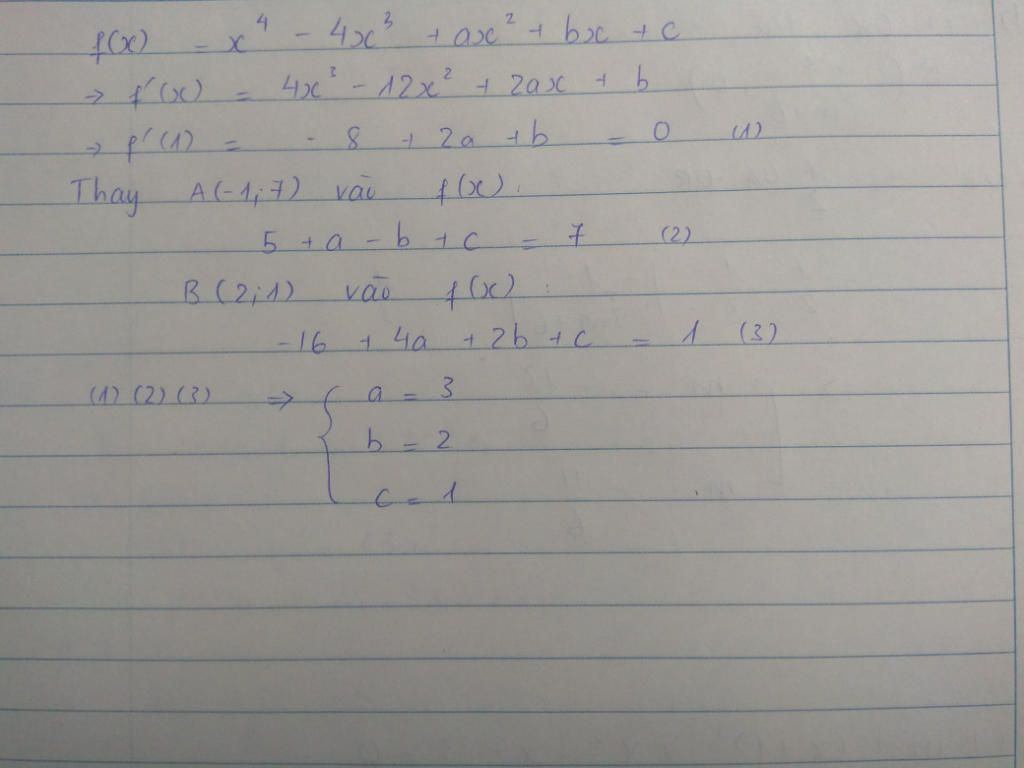 f(x) = x⁴ - 4x³ + ax² + bx + c
→ f'(x) = 4x³ - 12x² + 2ax + b
→ f'(1) = - 8 + 2a + b = 0 (1)
Thay A(-1;7) vào f(x) :
5 + a - b + c = 7 (2)
B(2;1) vào f(x) :
-16 + 4a + 2b + c = 1 (3)
(1) (2) (3) => { a = 3
b = 2
c = 1